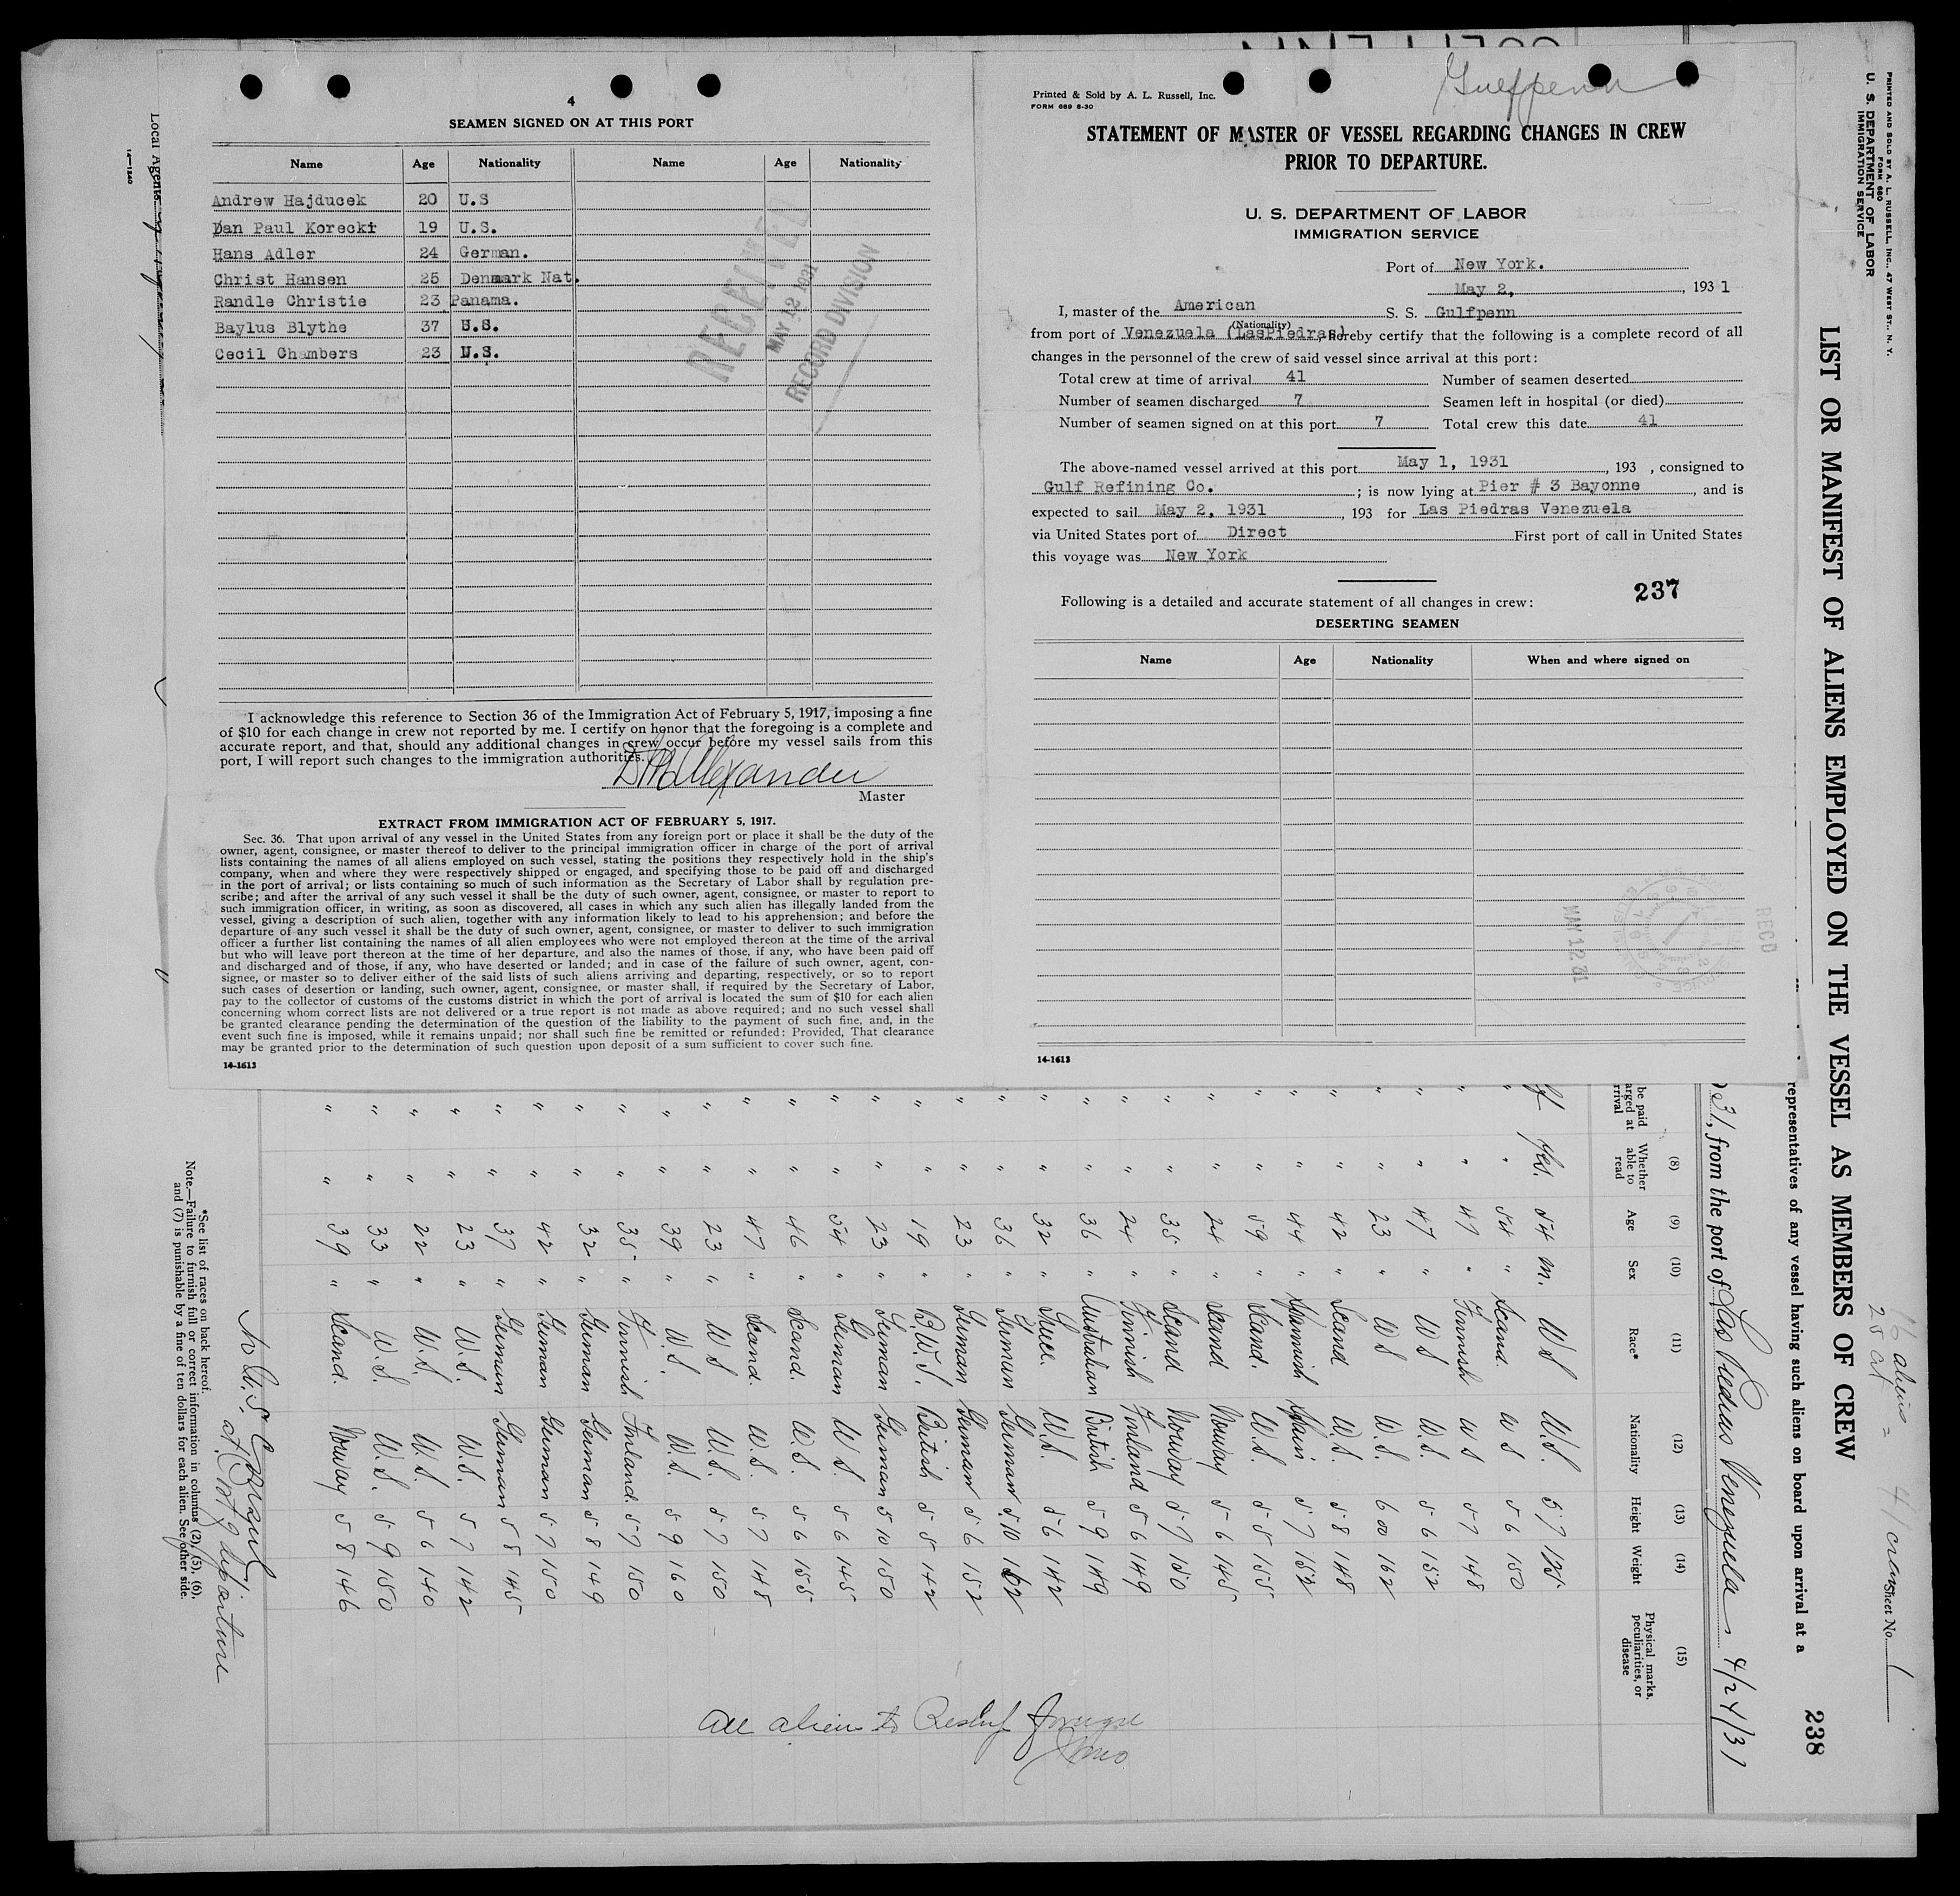 4
SEAMEN SIGNED ON AT THIS PORT
Name Age Nationality Name Age Nationality
Andrew Hajducek 20 U.S
Dan Paul Korecki 19 U.S.
Hans Adler 24 German.
Christ Hansen 25 Denmark Nat.
Randle Christie 23 Panama.
Baylus Blythe 37 U.S.
Cecil Chambers 23 U.S.
RECEIVED
MAY 12 1931
RECORD DIVISION
I acknowledge this reference to Section 36 of the Immigration Act of February 5, 1917, imposing a fine
of $10 for each change in crew not reported by me. I certify on honor that the foregoing is a complete and
accurate report, and that, should any additional changes in crew occur before my vessel sails from this
port, I will report such changes to the immigration authorities.
Alexander
Master
EXTRACT FROM IMMIGRATION ACT OF FEBRUARY 5, 1917.
Sec. 36. That upon arrival of any vessel in the United States from any foreign port or place it shall be the duty of the
owner, agent, consignee, or master thereof to deliver to the principal immigration officer in charge of the port of arrival
lists containing the names of all aliens employed on such vessel, stating the positions they respectively hold in the ship's
company, when and where they were respectively shipped or engaged, and specifying those to be paid off and discharged
in the port of arrival; or lists containing so much of such information as the Secretary of Labor shall by regulation pre-
scribe; and after the arrival of any such vessel it shall be the duty of such owner, agent, consignee, or master to report to
such immigration officer, in writing, as soon as discovered, all cases in which any such alien has illegally landed from the
vessel, giving a description of such alien, together with any information likely to lead to his apprehension; and before the
departure of any such vessel it shall be the duty of such owner, agent, consignee, or master to deliver to such immigration
officer a further list containing the names of all alien employees who were not employed thereon at the time of the arrival
but who will leave port thereon at the time of her departure, and also the names of those, if any, who have been paid off
and discharged and of those, if any, who have deserted or landed; and in case of the failure of such owner, agent, con-
signee, or master so to deliver either of the said lists of such aliens arriving and departing, respectively, or so to report
such cases of desertion or landing, such owner, agent, consignee, or master shall, if required by the Secretary of Labor,
pay to the collector of customs of the customs district in which the port of arrival is located the sum of $10 for each alien
concerning whom correct lists are not delivered or a true report is not made as above required; and no such vessel shall
be granted clearance pending the determination of the question of the liability to the payment of such fine, and, in the
event such fine is imposed, while it remains unpaid; nor shall such fine be remitted or refunded: Provided, That clearance
may be granted prior to the determination of such question upon deposit of a sum sufficient to cover such fine.
14-1613
Gulfpenn
Printed & Sold by A. L. Russell, Inc.
FORM 689 8-30
STATEMENT OF MASTER OF VESSEL REGARDING CHANGES IN CREW
PRIOR TO DEPARTURE.
U. S. DEPARTMENT OF LABOR
IMMIGRATION SERVICE
Port of New York.
May 2, , 193 1
I, master of the American S. S. Gulfpenn
(Nationality)
from port of Venezuela (LasPiedras) hereby certify that the following is a complete record of all
changes in the personnel of the crew of said vessel since arrival at this port:
Total crew at time of arrival 41 Number of seamen deserted
Number of seamen discharged 7 Seamen left in hospital (or died)
Number of seamen signed on at this port 7 Total crew this date 41
The above-named vessel arrived at this port May 1, 1931 , 193 , consigned to
Gulf Refining Co. ; is now lying at Pier # 3 Bayonne , and is
expected to sail May 2, 1931 , 193 for Las Piedras Venezuela
via United States port of Direct First port of call in United States
this voyage was New York
237
Following is a detailed and accurate statement of all changes in crew:
DESERTING SEAMEN
Name Age Nationality When and where signed on
RECD
MAY 12 31
14-1613
Local Agents
14-1240
PRINTED AND SOLD BY A. L. RUSSELL, INC., 47 WEST ST., N. Y.
FORM 680
U. S. DEPARTMENT OF LABOR
IMMIGRATION SERVICE
LIST OR MANIFEST OF ALIENS EMPLOYED ON THE VESSEL AS MEMBERS OF CREW
16 aliens = 41 crew
25 cit
Sheet No. 1
238
representatives of any vessel having such aliens on board upon arrival at a
31, from the port of Las Piedras Venezuela 4/24/31
be paid
arged at
rrival
(8) Whether able to read
(9) Age
(10) Sex
(11) Race*
(12) Nationality
(13) Height
(14) Weight
(15) Physical marks, peculiarities, or disease
Yes. 54 m. US U.S. 5 7 135
" 54 " Scand. US 5 6 150
" 47 " Finnish US 5 7 148
" 47 " US U.S. 5 6 152
" 23 " US U.S. 6 00 162
" 42 " Scand U.S. 5 8 148
" 44 " Spanish Spain 5 7 152
" 59 " Scand. U.S. 5 5 155
" 24 " Scand Norway 5 6 145
" 35 " Scand Norway 5 7 150
" 24 " Finnish Finland 5 6 149
" 36 " Australian British 5 9 149
" 32 " Greek. U.S. 5 6 142
" 36 " German German 5 10 162
" 23 " German German 5 6 152
" 19 " B.W.I. British 5 5 142
" 23 " German German 5 10 150
" 54 " German U S. 5 6 145
" 46 " Scand. U.S. 5 6 155
" 47 " Scand. U.S. 5 7 148
" 23 " U S U.S. 5 7 150
" 39 " U.S. U.S. 5 9 160
" 35 " Finnish Finland. 5 7 150
" 32 " German German 5 8 149
" 42 " German German 5 7 150
" 37 " German German 5 8 145
" 23 " U.S. U.S. 5 7 142
" 22 " U.S. U.S. 5 6 140
" 33 " U.S. U.S. 5 9 150
" 39 " Scand. Norway 5 8 146
All aliens to Reship foreign
*See list of races on back hereof.
Note.—Failure to furnish full or correct information in columns (2), (5), (6),
and (7) is punishable by a fine of ten dollars for each alien. See other side.
No U.S. Consul
at Port of departure